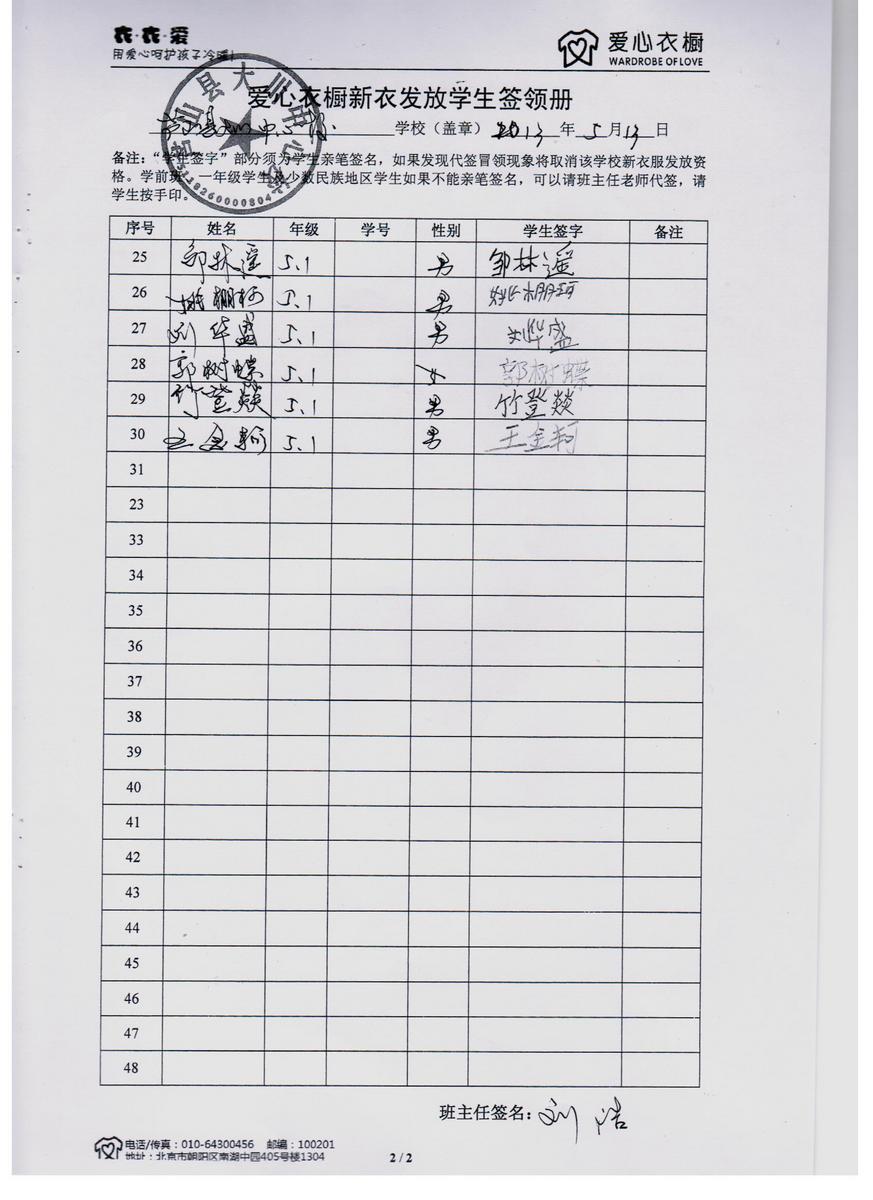 衣·衣·爱
用爱心呵护孩子冷暖!
爱心衣橱
WARDROBE OF LOVE
爱心衣橱新衣发放学生签领册
芦山县大川中心校 学校（盖章） 2013 年 5 月 13 日
备注：“学生签字”部分须为学生亲笔签名，如果发现代签冒领现象将取消该学校新衣服发放资
格。学前班、一年级学生及少数民族地区学生如果不能亲笔签名，可以请班主任老师代签，请
学生按手印。
序号 姓名 年级 学号 性别 学生签字 备注
25 邹林遥 5.1 男 邹林遥
26 姚棚柯 5.1 男
27 刘华盛 5.1 男 刘烨盛
28 郭树蝶 5.1 女 郭树蝶
29 竹登燚 5.1 男 竹登燚
30 王金轲 5.1 男 王金轲
31
23
33
34
35
36
37
38
39
40
41
42
43
44
45
46
47
48
班主任签名：刘浩
电话/传真：010-64300456 邮编：100201
地址：北京市朝阳区南湖中园405号楼1304
2 / 2